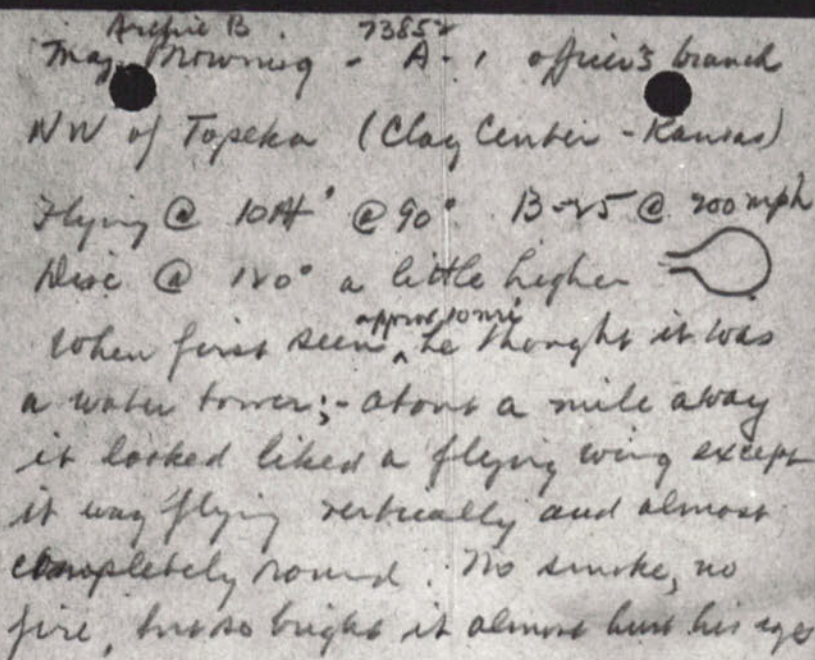 Archie B. 73852
Maj. Browning - A-1 officer's branch
NW of Topeka (Clay Center - Kansas)
Flying @ @ 90° B-25 @ 200 mph
Disc @ 120° a little higher
approx 10 mi
When first seen ^ he thought it was
a water tower; - about a mile away
it looked liked a flying wing except
it was flying vertically and almost
completely round. No smoke, no
fire, but so bright it almost hurt his eyes